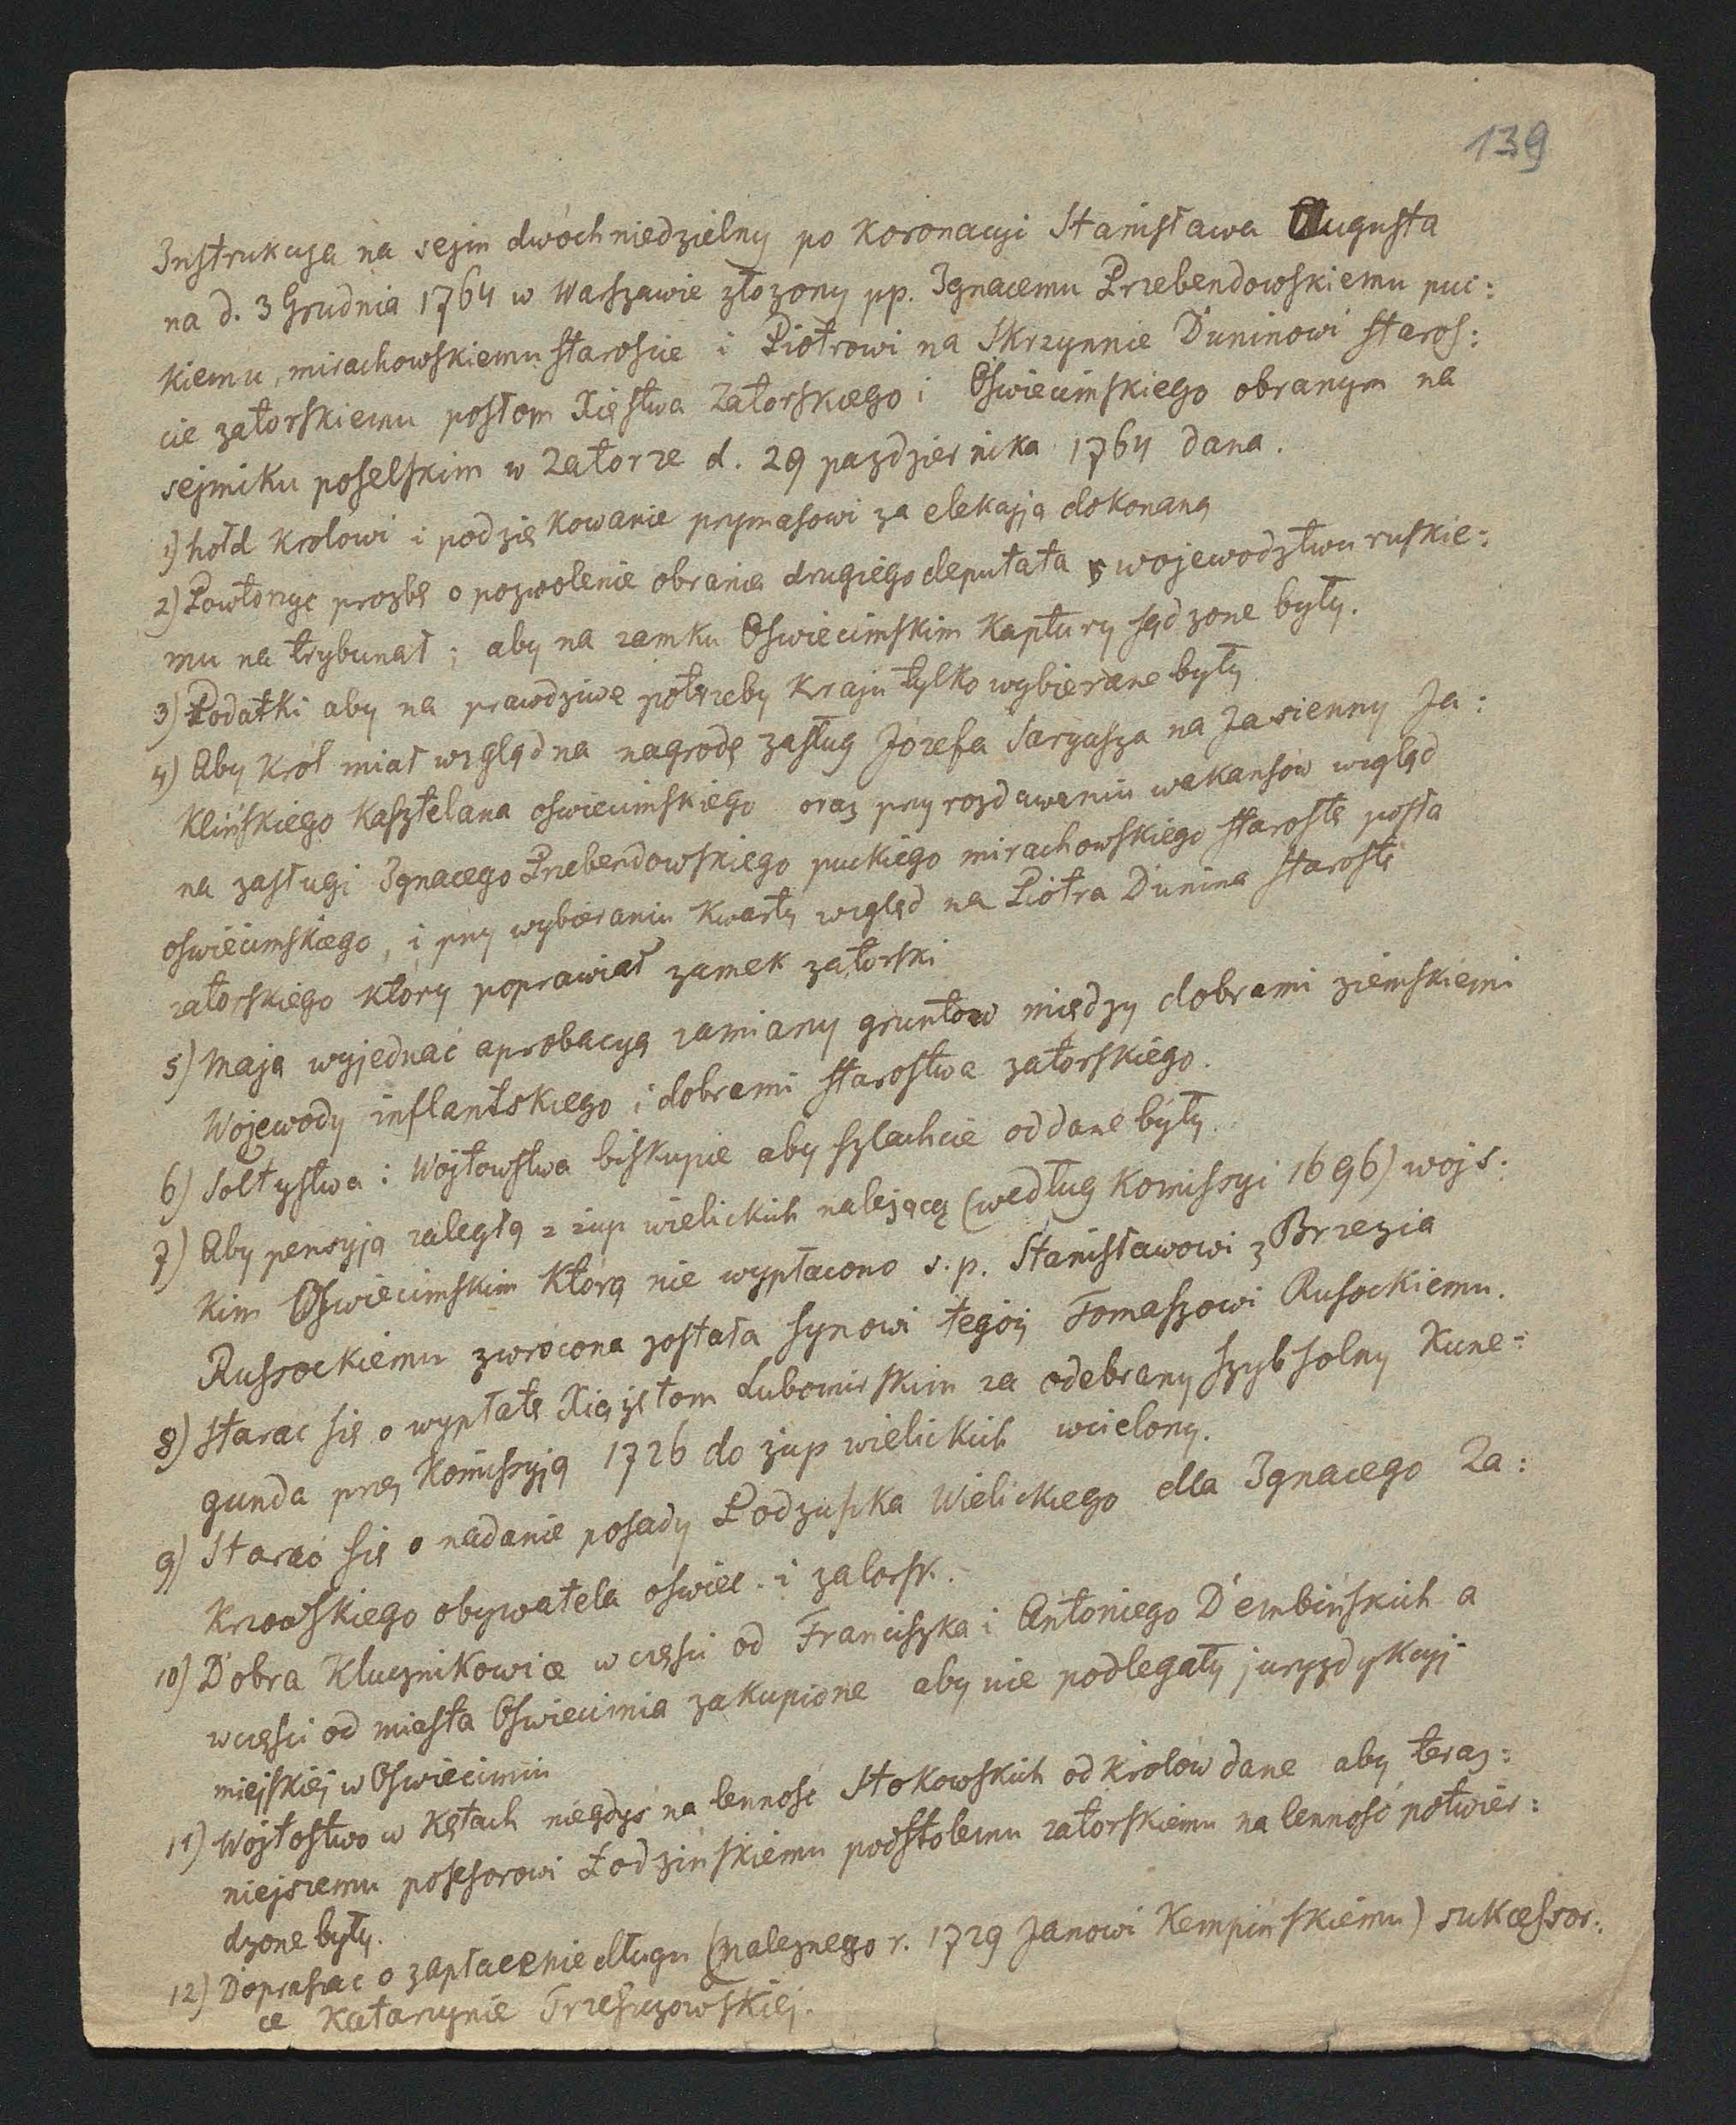 139
Instrukcyja na sejm dwóchniedzielny po Koronacyi Stanisława Augusta
na d. 3 Grudnia 1764 w Warszawie złożony pp. Ignacemu Przebendowskiemu puc:
kiemu, mirachowskiemu staroście i Piotrowi na Skrzynnie Duninowi staroś:
cie zatorskiemu posłom Xięstwa Zatorskiego i Oświecimskiego obranym na
sejmiku poselskim w Zatorze d. 29 pazdziernika 1764 dana.
1) hołd królowi i podziękowanie prymasowi za elekcyją dokonaną
2) Powtórzyć prozbę o pozwolenie obrania drugiego deputata województwu ruskie:
mu na trybunał; aby na zamku Oświecimskim Kaptury sądzone były.
3) Podatki aby na prawdziwe potrzeby kraju tylko wybierane były
4) Aby Król miał wzgląd na nagrodę zasług Józefa Saryusza na Jasienny Ja:
Klińskiego Kasztelana oświecimskiego oraz przy rozdawaniu wakansów wzgląd
na zasługi Ignacego Przebendowskiego puckiego mirachowskiego starostę posła
oświecimskiego, i przy wybieraniu Kwarty wzgląd na Piotra Dunina starostę
zatorskiego który poprawiał zamek zatorski
5) Mają wyjednać aprobacyą zamiany gruntów między dobrami ziemskiemi
Wojewody inflantskiego i dobrami starostwa zatorskiego.
6) Sołtystwa i Wójtowstwa biskupie aby szlachcie oddane były.
7) Aby pensyją zaległą z żup wielickich należącą (według Komissyi 1696) wojs:
kim Oświecimskim którą nie wypłacono s.p. Stanisławowi z Brzezia
Russockiemu zwrócona została synowi tegóż Tomaszowi Rusockiemu.
8) starać się o wypłatę Xiążętom Lubomirskim za odebrany szyb solny Kune=
gunda przez Komissyją 1726 do żup wielickich wcielony.
9) Starać się o nadanie posady Podżupka Wielickiego dla Ignacego Za:
Krzowskiego obywatela oświec. i zatorsk.
10) Dobra Klucznikowice w części od Franciszka i Antoniego Dembińskich a
w części od miasta Oświecimia zakupione aby nie podlegały juryzdykcyi
miejskiej w Oświecimiu
11) Wójtostwo w Kętach niegdyś na lenność Stokowskich od królów dane aby teraz:
niejszemu posesorowi Łodzińskiemu podstolemu zatorskiemu na lenność potwier:
dzone były.
12) Dopraszać o zapłacenie długu (należnego r. 1729 Janowi Kempińskiemu) sukcessor:
ce Katarzynie Trzeszczowskiej.